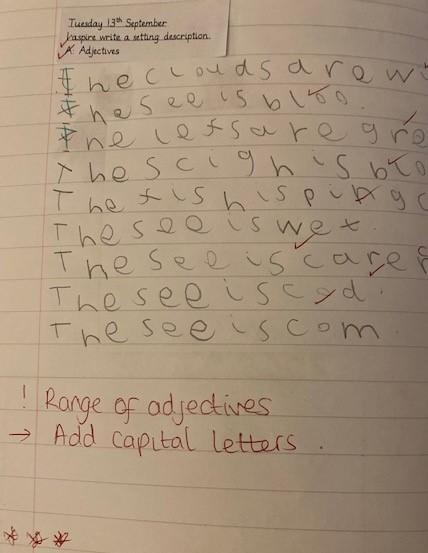 Tuesday 13th September
I aspire write a setting description.
A: Adjectives
The clouds are w
The see is bloo.
The lefs are gre
The scigh is blo
The fish is pingc
The see is wet.
The see is care
The see is cod.
The see is com.
! Range of adjectives
→ Add capital letters.